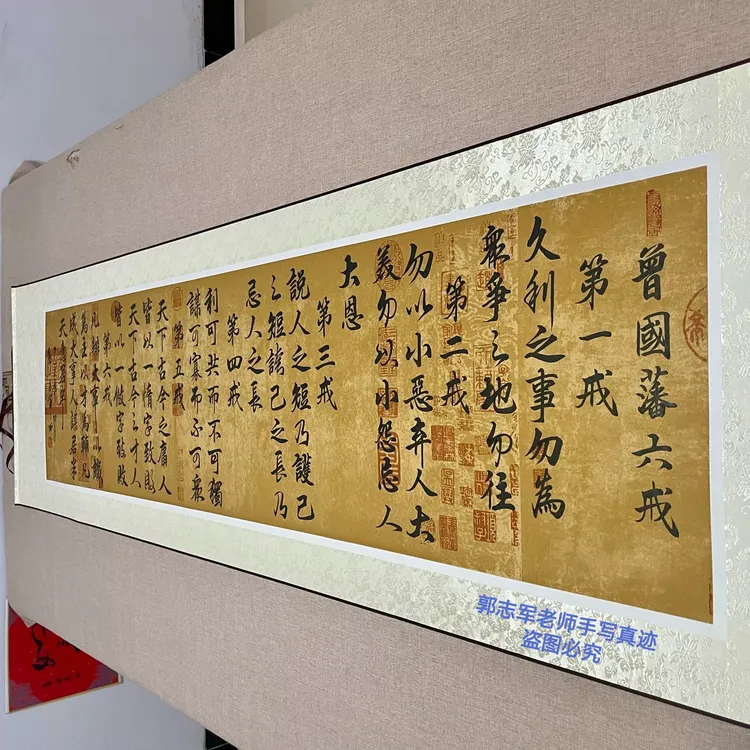 曾國藩六戒
第一戒
久利之事勿為
眾爭之地勿往
第二戒
勿以小惡弃人大
美勿以小怨忘人
大恩
第三戒
說人之短乃護己
之短誇己之長乃
忌人之長
第四戒
利可共而不可獨
謀可寡而不可眾
第五戒
天下古今之庸人
皆以一惰字致敗
天下古今之才人
皆以一傲字致敗
第六戒
凡辦大事以識
為主以才為輔凡
成大事人謀居半
天意居半
郭志军老师手写真迹
盗图必究